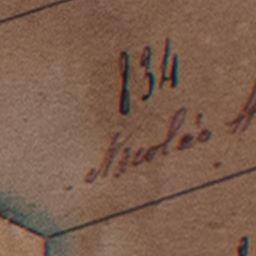 834
Nicolás